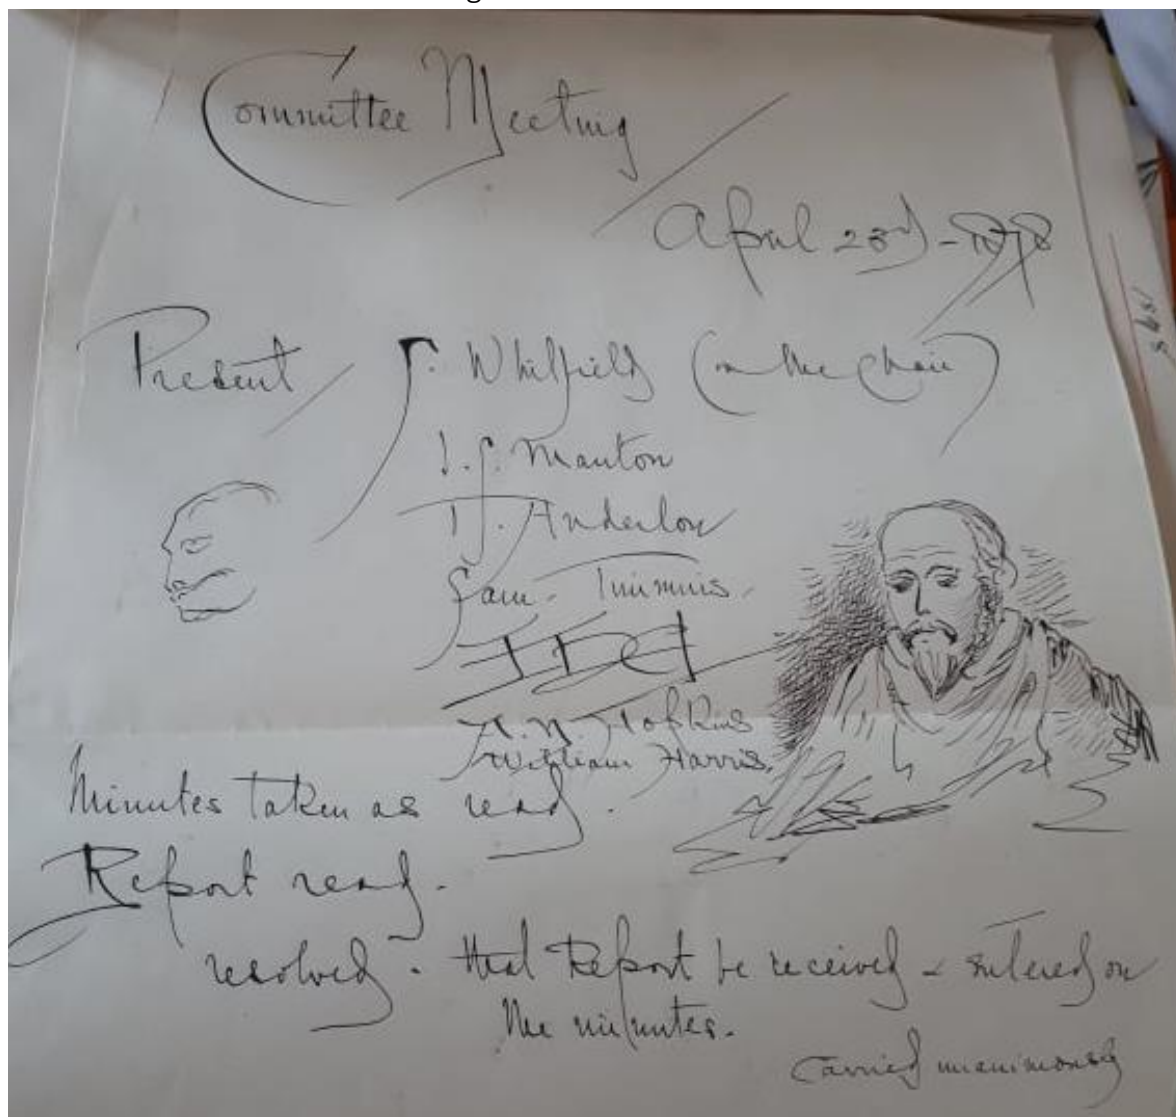 Committee Meeting
April 23rd - 1878
Present / J. Whitfield (in the chair)
J. S. Manton
T. J. Anderson
Sam. Timmins.
A. N. Hopkins
William Harris.
Minutes taken as read.
Report read.
resolved. that Report be received & entered on
the minutes.
Carried unanimously